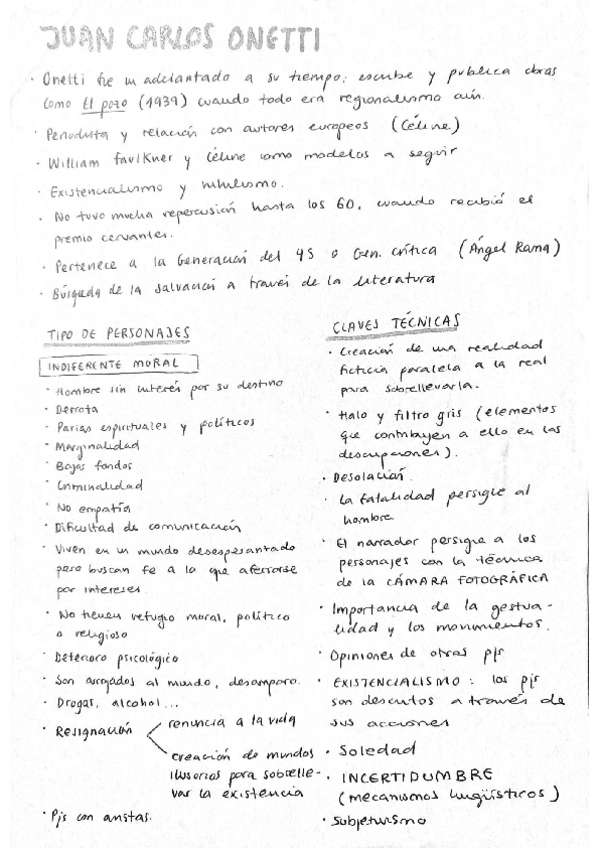 JUAN CARLOS ONETTI
· Onetti fue un adelantado a su tiempo: escribe y publica obras
como El pozo (1939) cuando todo era regionalismo aún.
· Periodista y relación con autores europeos (Céline)
· William Faulkner y Céline como modelos a seguir
· Existencialismo y nihilismo.
· No tuvo mucha repercusión hasta los 60, cuando recibió el
premio cervantes.
· Pertenece a la Generación del 45 o Gen. Crítica (Ángel Rama)
· Búsqueda de la salvación a través de la literatura
TIPO DE PERSONAJES
INDIFERENTE MORAL
· Hombre sin interés por su destino
· Derrota
· Parias espirituales y políticos
· Marginalidad
· Bajos fondos
· Criminalidad
· No empatía
· Dificultad de comunicación
· Viven en un mundo desesperantado
pero buscan fe a la que aferrarse
por intereses.
· No tienen refugio moral, político
o religioso
· Deterioro psicológico
· Son arrojados al mundo, desamparo.
· Drogas, alcohol...
· Resignación
renuncia a la vida
creación de mundos
ilusorios para sobrelle-
var la existencia
· Pjs con aristas.
CLAVES TÉCNICAS
· Creación de una realidad
ficticia paralela a la real
para sobrellevarla.
· Halo y filtro gris (elementos
que contribuyen a ello en las
descripciones).
· Desolación.
· La fatalidad persigue al
hombre.
· El narrador persigue a los
personajes con la técnica
de la CÁMARA FOTOGRÁFICA
· Importancia de la gestua-
lidad y los movimientos.
· Opiniones de otros pjs
· EXISTENCIALISMO: los pjs
son descritos a través de
sus acciones
· Soledad
· INCERTIDUMBRE
(mecanismos lingüísticos)
· Subjetivismo